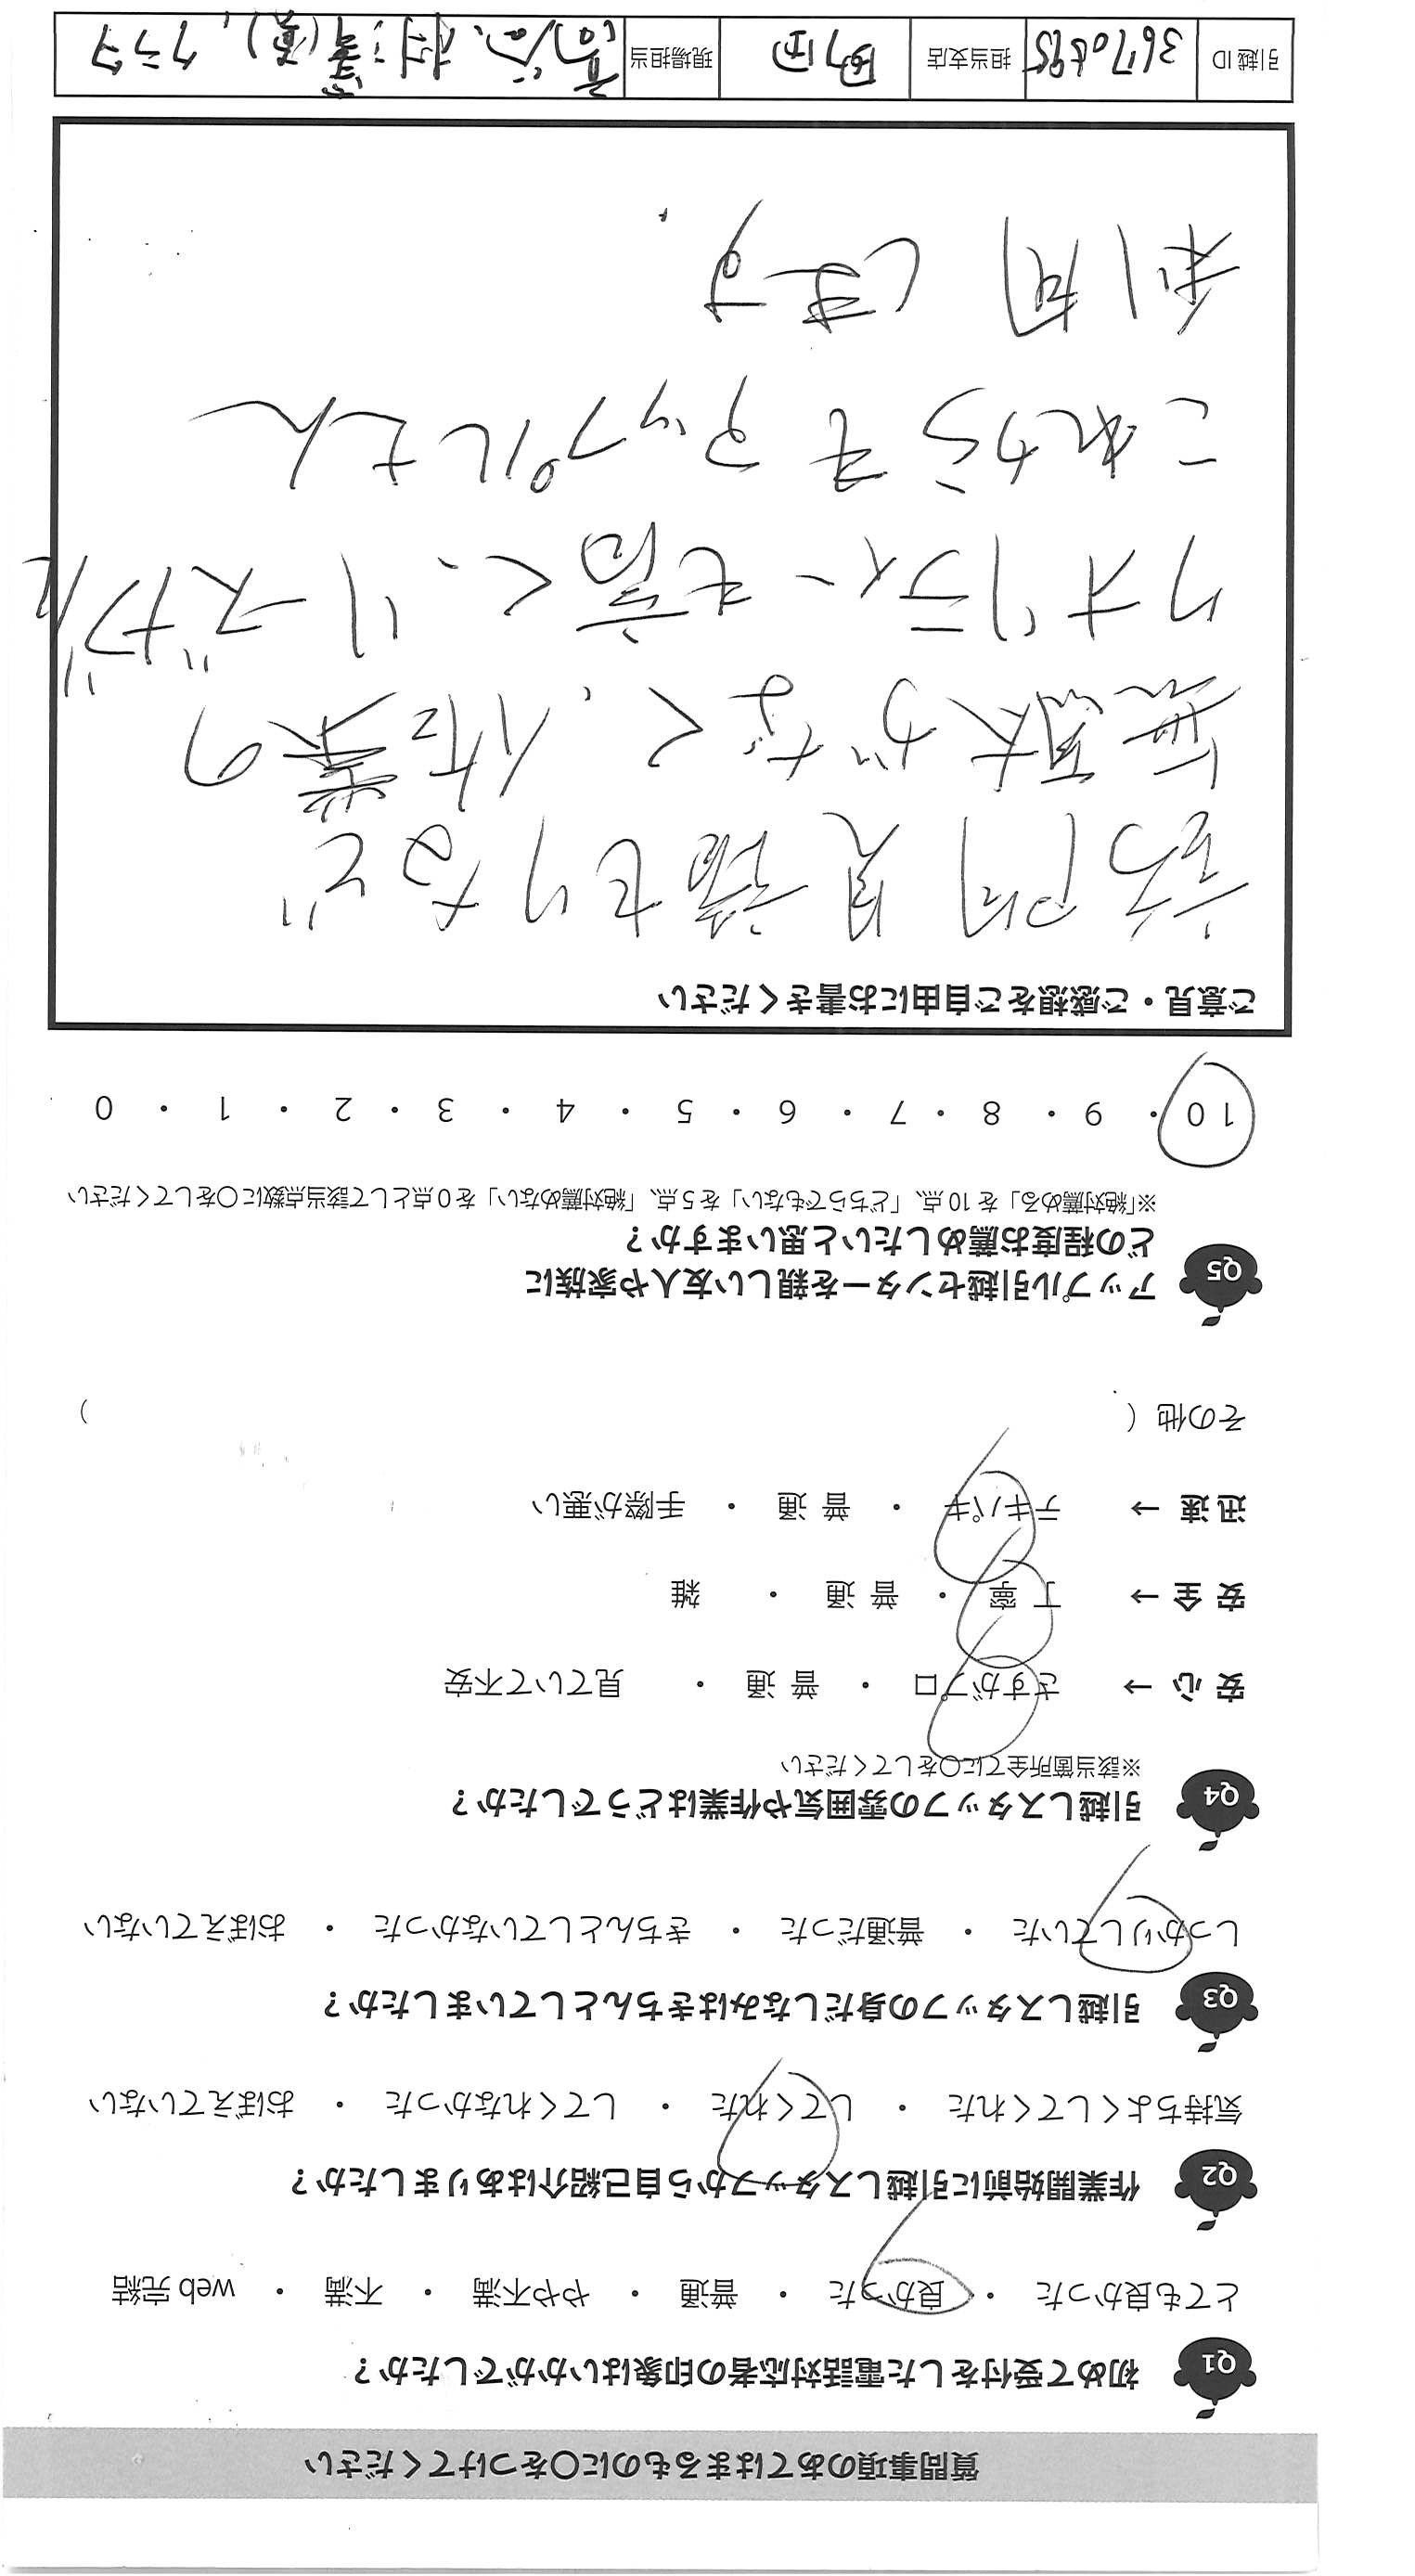 質問事項のあてはまるものに〇をつけてください
Q1 初めて受付をした電話対応者の印象はいかがでしたか？
とても良かった ・ 良かった ・ 普通 ・ やや不満 ・ 不満 ・ web 完結
Q2 作業開始前に引越しスタッフから自己紹介はありましたか？
気持ちよくしてくれた ・ してくれた ・ してくれなかった ・ おぼえていない
Q3 引越しスタッフの身だしなみはきちんとしていましたか？
しっかりしていた ・ 普通だった ・ きちんとしていなかった ・ おぼえていない
Q4 引越しスタッフの雰囲気や作業はどうでしたか？
※該当箇所全てに〇をしてください
安心 → さすがプロ ・ 普通 ・ 見ていて不安
安全 → 丁寧 ・ 普通 ・ 雑
迅速 → テキパキ ・ 普通 ・ 手際が悪い
その他（ ）
Q5 アップル引越センターを親しい友人や家族に
どの程度お薦めしたいと思いますか？
※「絶対薦める」を 10 点、「どちらでもない」を 5 点、「絶対薦めない」を 0 点として該当点数に〇をしてください
10 ・ 9 ・ 8 ・ 7 ・ 6 ・ 5 ・ 4 ・ 3 ・ 2 ・ 1 ・ 0
ご意見・ご感想をご自由にお書きください
訪問見積もりなど
無駄がなく、作業の
クオリティーも高く、リーズナブル
これからもアップルさん
利用します.
引越 ID 担当支店 現場担当